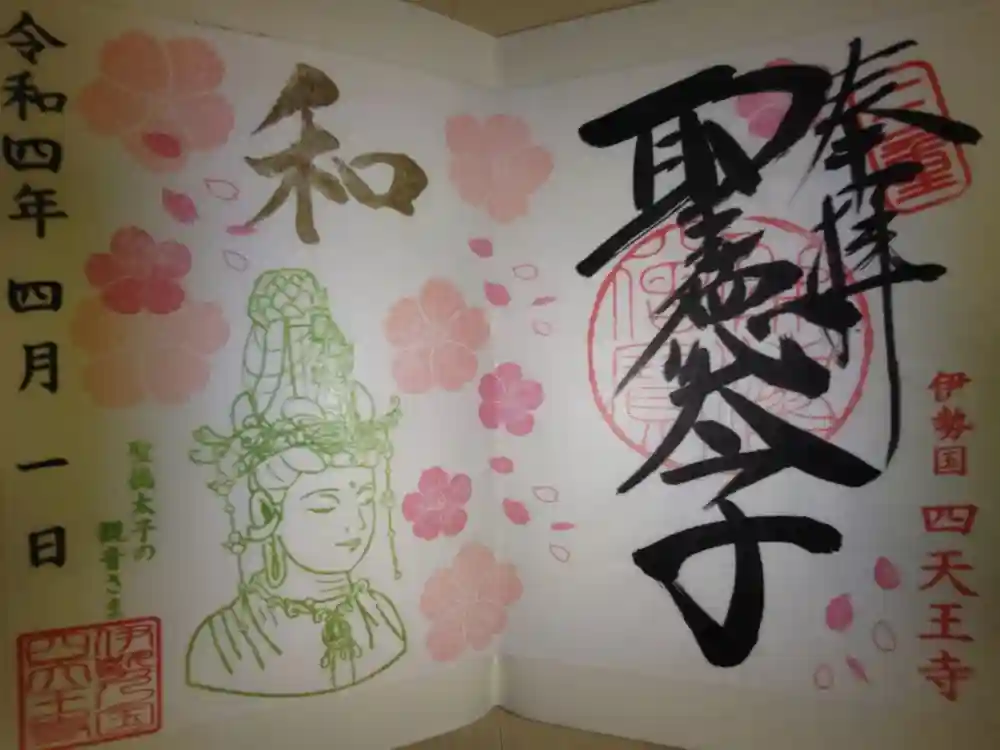 奉拝
聖徳太子
伊勢国 四天王寺
和
聖徳太子の
観音さま
令和四年 四月 一日
伊勢国
四天王寺